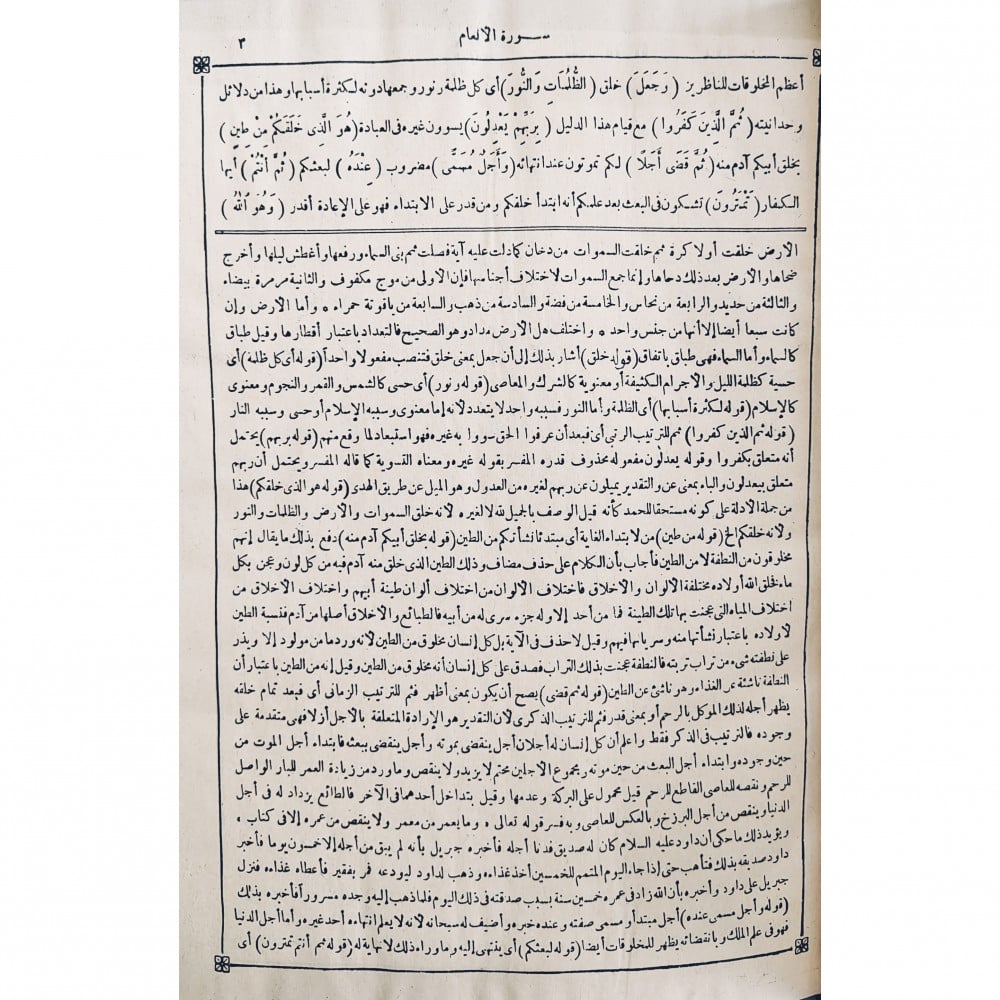 سورة الأنعام
٣
أعظم المخلوقات للناظرين (وَجَعَلَ) خلق (الظُّلُمَاتِ وَالنُّورَ) أى كل ظلمة ونور وجمعها دونه لكثرة أسبابها وهذا من دلائل
وحدانيته (ثُمَّ الَّذِينَ كَفَرُوا) مع قيام هذا الدليل (بِرَبِّهِمْ يَعْدِلُونَ) يسوون غيره فى العبادة (هُوَ الَّذِى خَلَقَكُمْ مِنْ طِينٍ)
بخلق أبيكم آدم منه (ثُمَّ قَضَى أَجَلًا) لكم تموتون عند انتهائه (وَأَجَلٌ مُسَمًّى) مضروب (عِنْدَهُ) لبعثكم (ثُمَّ أَنْتُمْ) أيها
الكفار (تَمْتَرُونَ) تشكون فى البعث بعد علمكم أنه ابتدأ خلقكم ومن قدر على الابتداء فهو على الإعادة أقدر (وَهُوَ اللهُ)
الأرض خلقت أولا كرة ثم خلقت السموات من دخان كما دلت عليه آية فصلت ثم بنى السماء ورفعها وأغطش ليلها وأخرج
ضحاها والأرض بعد ذلك دحاها وإنما جمع السموات لاختلاف أجناسها فإن الأولى من موج مكفوف والثانية مرمرة بيضاء
والثالثة من حديد والرابعة من نحاس والخامسة من فضة والسادسة من ذهب والسابعة من ياقوتة حمراء * وأما الأرض وإن
كانت سبعا أيضا إلا أنها من جنس واحد * واختلف هل الأرض مداد وهو الصحيح فالتعداد باعتبار أقطارها وقيل طباق
كالسماء وأما السماء فهى طباق باتفاق (قوله خلق) أشار بذلك إلى أن جعل بمعنى خلق فتنصب مفعولا واحداً (قوله أى كل ظلمة) أى
حسية كظلمة الليل والأجرام الكثيفة أو معنوية كالشرك والمعاصى (قوله ونور) أى حسى كالشمس والقمر والنجوم ومعنوى
كالإسلام (قوله لكثرة أسبابها) أى الظلمة وأما النور فسببه واحد لا يتعدد لأنه إما معنوى وسببه الإسلام أو حسى وسببه النار
(قوله ثم الذين كفروا) ثم للترتيب الرتبى أى فبعد أن عرفوا الحق سووا به غيره فهو استبعاد لما وقع منهم (قوله بربهم) يحتمل
أنه متعلق بكفروا وقوله يعدلون مفعوله محذوف قدره المفسر بقوله غيره ومعناه التسوية كما قاله المفسر ويحتمل أن ربهم
متعلق بيعدلون والباء بمعنى عن والتقدير يميلون عن ربهم لغيره من العدول وهو الميل عن طريق الهدى (قوله هو الذى خلقكم) هذا
من جملة الأدلة على كونه مستحقا للحمد كأنه قيل الوصف بالجميل لله لا لغيره لأنه خلق السموات والأرض والظلمات والنور
ولأنه خلقكم الخ (قوله من طين) من لابتداء الغاية أى مبتدئا نشأتكم من الطين (قوله بخلق أبيكم آدم منه) دفع بذلك ما يقال إنهم
مخلوقون من النطفة لا من الطين فأجاب بأن الكلام على حذف مضاف وذلك الطين الذى خلق منه آدم فيه من كل لون وعجن بكل
ماء فخلق الله أولاده مختلفة الألوان والأخلاق فاختلاف الألوان من اختلاف ألوان طينة أبيهم واختلاف الأخلاق من
اختلاف المياه التى عجنت بها تلك الطينة فما من أحد إلا وله جزء سرى له من أبيه فالطبائع والأخلاق أصلها من آدم فنسبة الطين
لأولاده باعتبار نشأتها منه وسريانها فيهم وقيل لا حذف فى الآية بل كل إنسان مخلوق من الطين لأنه ورد ما من مولود إلا ويذر
على نطفته شىء من تراب تربته فالنطفة عجنت بذلك التراب فصدق على كل إنسان أنه مخلوق من الطين وقيل إنه من الطين باعتبار أن
النطفة ناشئة عن الغذاء وهو ناشئ عن الطين (قوله ثم قضى) يصح أن يكون بمعنى أظهر فثم للترتيب الزمانى أى فبعد تمام خلقه
يظهر أجله لذلك الموكل بالرحم أو بمعنى قدر فثم للترتيب الذكرى لأن التقدير هو الإرادة المتعلقة بالأجل أزلا فهى متقدمة على
وجوده فالترتيب فى الذكر فقط واعلم أن كل إنسان له أجلان أجل ينقضى بموته وأجل ينقضى ببعثه فابتداء أجل الموت من
حين وجوده وابتداء أجل البعث من حين موته ومجموع الأجلين محتم لا يزيد ولا ينقص وما ورد من زيادة العمر للبار الواصل
للرحم ونقصه للعاصى القاطع للرحم قيل محمول على البركة وعدمها وقيل بتداخل أحدهما فى الآخر فالطائع يزداد له فى أجل
الدنيا وينقص من أجل البرزخ وبالعكس للعاصى وبه فسر قوله تعالى * وما يعمر من معمر ولا ينقص من عمره إلا فى كتاب *
ويؤيد ذلك ما حكى أن داود عليه السلام كان له صديق قد دنا أجله فأخبره جبريل بأنه لم يبق من أجله إلا خمسون يوما فأخبر
داود صديقه بذلك فتأهب حتى إذا جاء اليوم المتمم للخمسين أخذ غذاءه وذهب لداود ليودعه فمر بفقير فأعطاه غذاءه فنزل
جبريل على داود وأخبره بأن الله زاد فى عمره خمسين سنة بسبب صدقته فى ذلك اليوم فلما ذهب إليه وجده مسروراً فأخبره بذلك
(قوله وأجل مسمى عنده) أجل مبتدأ ومسمى صفته وعنده خبره وأضيف له سبحانه لأنه لا يعلم انتهاءه أحد غيره وأما أجل الدنيا
فهو فى علم الملك وبانقضائه يظهر للمخلوقات أيضا (قوله لبعثكم) أى ينتهى إليه وما وراء ذلك لا نهاية له (قوله ثم أنتم تمترون) أى